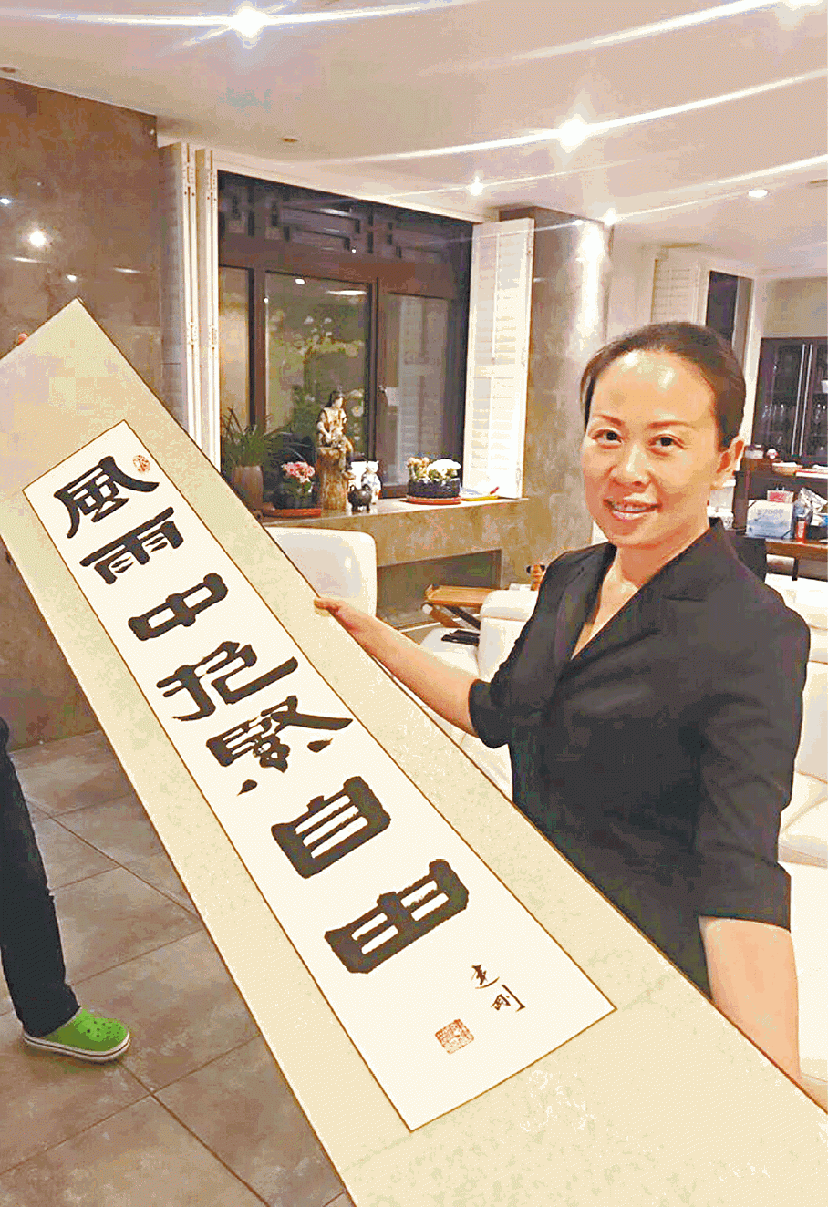 風雨中抱緊自由
建剛